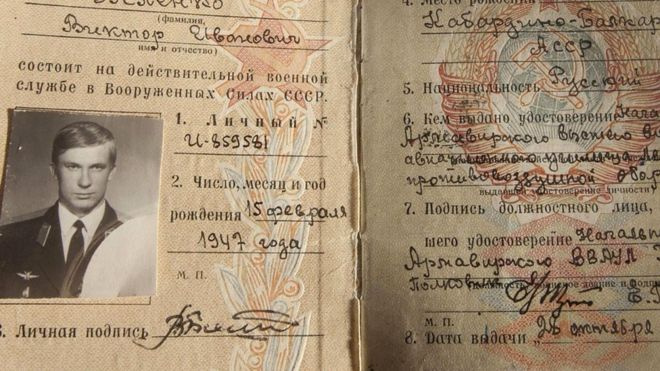 (фамилия,
Виктор Иванович
имя и отчество)
состоит на действительной военной
службе в Вооруженных Силах СССР.
1. Личный №
И-859581
2. Число, месяц и год
рождения 15 февраля
1947 года
М. П.
3. Личная подпись
4. Место рождения
Кабардино-Балкар
АССР
5. Национальность Русский
6. Кем выдано удостоверение Нача
Армавирского высшего
авиационного училища
противовоздушной обор
выдавшей удостоверение личности
7. Подпись должностного лица,
шего удостоверение Начальн
Армавирского ВВАУЛ
Полковник
М. П.
8. Дата выдачи 26 октября